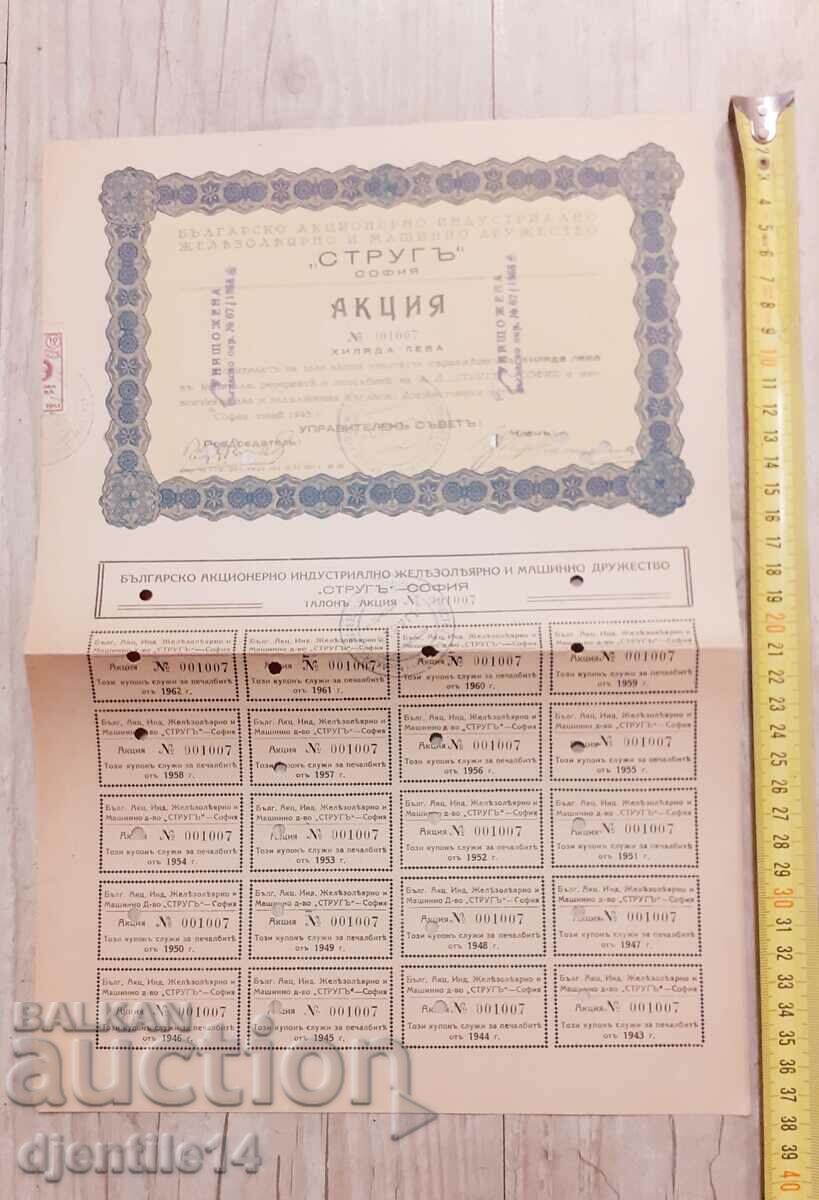 БЪЛГАРСКО АКЦИОНЕРНО ИНДУСТРИАЛНО
ЖЕЛѢЗОЛѢЯРНО И МАШИННО ДРУЖЕСТВО
„СТРУГЪ“
СОФИЯ
АКЦИЯ
№ 001007
ХИЛЯДА ЛЕВА
УНИЩОЖЕНА
Съгласно окр. № 67/1968
УНИЩОЖЕНА
Съгласно окр. № 67/1968
хиляда лева
София
УПРАВИТЕЛЕНЪ СЪВЕТЪ:
Председатель:
Членъ:
БЪЛГАРСКО АКЦИОНЕРНО ИНДУСТРИАЛНО ЖЕЛѢЗОЛѢЯРНО И МАШИННО ДРУЖЕСТВО
„СТРУГЪ“—СОФИЯ
ТАЛОНЪ АКЦИЯ № 001007
Бълг. Акц. Инд. Желѣзолѣярно и
Машинно д-во „СТРУГЪ“—София
Акция № 001007
Този купонъ служи за печалбитѣ
отъ 1962 г.
Бълг. Акц. Инд. Желѣзолѣярно и
Машинно д-во „СТРУГЪ“—София
Акция № 001007
Този купонъ служи за печалбитѣ
отъ 1961 г.
Бълг. Акц. Инд. Желѣзолѣярно и
Машинно д-во „СТРУГЪ“—София
Акция № 001007
Този купонъ служи за печалбитѣ
отъ 1960 г.
Бълг. Акц. Инд. Желѣзолѣярно и
Машинно д-во „СТРУГЪ“—София
Акция № 001007
Този купонъ служи за печалбитѣ
отъ 1959 г.
Бълг. Акц. Инд. Желѣзолѣярно и
Машинно д-во „СТРУГЪ“—София
Акция № 001007
Този купонъ служи за печалбитѣ
отъ 1958 г.
Бълг. Акц. Инд. Желѣзолѣярно и
Машинно д-во „СТРУГЪ“—София
Акция № 001007
Този купонъ служи за печалбитѣ
отъ 1957 г.
Бълг. Акц. Инд. Желѣзолѣярно и
Машинно д-во „СТРУГЪ“—София
Акция № 001007
Този купонъ служи за печалбитѣ
отъ 1956 г.
Бълг. Акц. Инд. Желѣзолѣярно и
Машинно д-во „СТРУГЪ“—София
Акция № 001007
Този купонъ служи за печалбитѣ
отъ 1955 г.
Бълг. Акц. Инд. Желѣзолѣярно и
Машинно д-во „СТРУГЪ“—София
Акция № 001007
Този купонъ служи за печалбитѣ
отъ 1954 г.
Бълг. Акц. Инд. Желѣзолѣярно и
Машинно д-во „СТРУГЪ“—София
Акция № 001007
Този купонъ служи за печалбитѣ
отъ 1953 г.
Бълг. Акц. Инд. Желѣзолѣярно и
Машинно д-во „СТРУГЪ“—София
Акция № 001007
Този купонъ служи за печалбитѣ
отъ 1952 г.
Бълг. Акц. Инд. Желѣзолѣярно и
Машинно д-во „СТРУГЪ“—София
Акция № 001007
Този купонъ служи за печалбитѣ
отъ 1951 г.
Бълг. Акц. Инд. Желѣзолѣярно и
Машинно Д-во „СТРУГЪ“—София
Акция № 001007
Този купонъ служи за печалбитѣ
отъ 1950 г.
Бълг. Акц. Инд. Желѣзолѣярно и
Машинно Д-во „СТРУГЪ“—София
Акция № 001007
Този купонъ служи за печалбитѣ
отъ 1949 г.
Бълг. Акц. Инд. Желѣзолѣярно и
Машинно Д-во „СТРУГЪ“—София
Акция № 001007
Този купонъ служи за печалбитѣ
отъ 1948 г.
Бълг. Акц. Инд. Желѣзолѣярно и
Машинно Д-во „СТРУГЪ“—София
Акция № 001007
Този купонъ служи за печалбитѣ
отъ 1947 г.
Бълг. Акц. Инд. Желѣзолѣярно и
Машинно д-во „СТРУГЪ“—София
Акция № 001007
Този купонъ служи за печалбитѣ
отъ 1946 г.
Бълг. Акц. Инд. Желѣзолѣярно и
Машинно д-во „СТРУГЪ“—София
Акция № 001007
Този купонъ служи за печалбитѣ
отъ 1945 г.
Бълг. Акц. Инд. Желѣзолѣярно и
Машинно д-во „СТРУГЪ“—София
Акция № 001007
Този купонъ служи за печалбитѣ
отъ 1944 г.
Бълг. Акц. Инд. Желѣзолѣярно и
Машинно д-во „СТРУГЪ“—София
Акция № 001007
Този купонъ служи за печалбитѣ
отъ 1943 г.
2 3 4 5 6 7 8 9 10 11 12 13 14 15 16 17 18 19 20 21 22 23 24 25 26 27 28 29 30 31 32 33 34 35 36 37 38 39 40
BALKAN
auction
djentile14